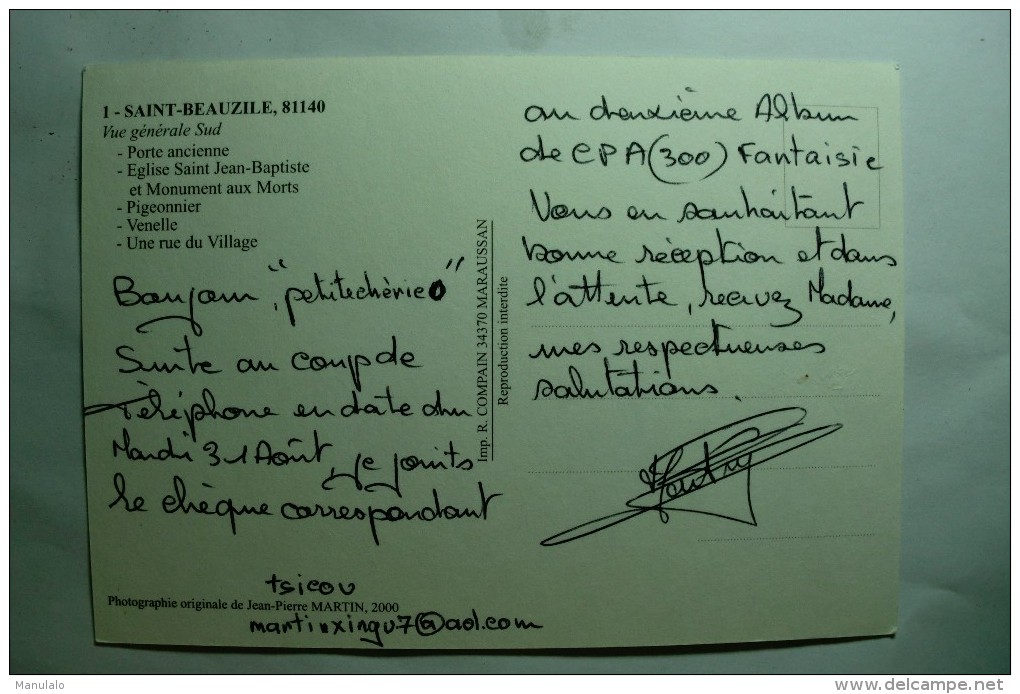 1 - SAINT-BEAUZILE, 81140
Vue générale Sud
- Porte ancienne
- Eglise Saint Jean-Baptiste
et Monument aux Morts
- Pigeonnier
- Venelle
- Une rue du Village
Bonjour, "petitechérie0"
Suite au coup de
Téléphone en date du
Mardi 31 Août, je joints
le chèque correspondant
au deuxième Album
de CPA (300) Fantaisie
Vous en souhaitant
bonne réception et dans
l'attente, recevez Madame,
mes respectueuses
salutations.
Imp. R. COMPAIN 34370 MARAUSSAN
Reproduction interdite
tsicou
Photographie originale de Jean-Pierre MARTIN, 2000
martinxingu7@aol.com
Manulalo
delcampe.net